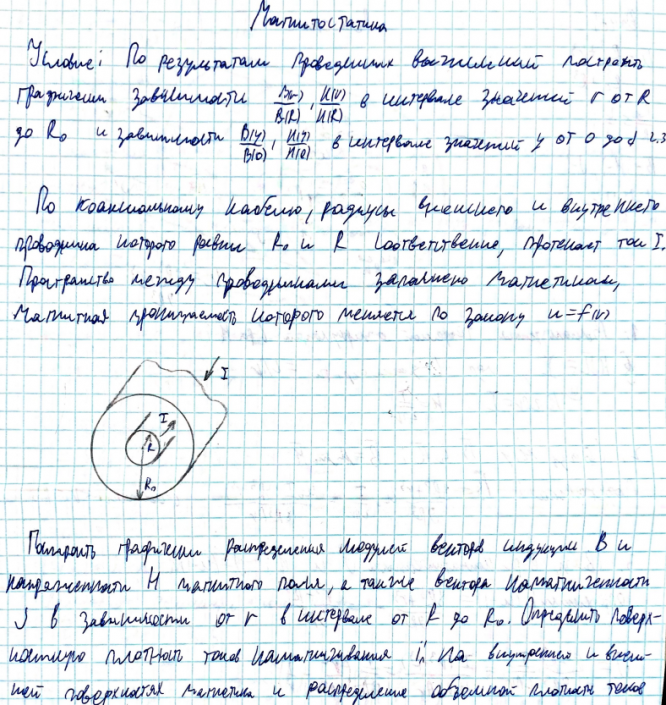 Магнитостатика
Условие: По результатам проведенных вычислений построить
графически зависимости B(r)/B(R), H(r)/H(R) в интервале значений r от R
до R₀ и зависимости B(y)/B(0), H(y)/H(0) в интервале значений y от 0 до d
По коаксиальному кабелю, радиусы внешнего и внутреннего
проводника которого равны R₀ и R соответственно, протекает ток I.
Пространство между проводниками заполнено магнетиком,
магнитная проницаемость которого меняется по закону μ=f(r)
I
I
R
R₀
Построить графически распределения модулей векторов индукции B и
напряженности H магнитного поля, а также вектора намагниченности
J в зависимости от r в интервале от R до R₀. Определить поверх-
ностную плотность токов намагничивания i'ₙ на внутренней и внеш-
ней поверхностях магнетика и распределение объемной плотности токов